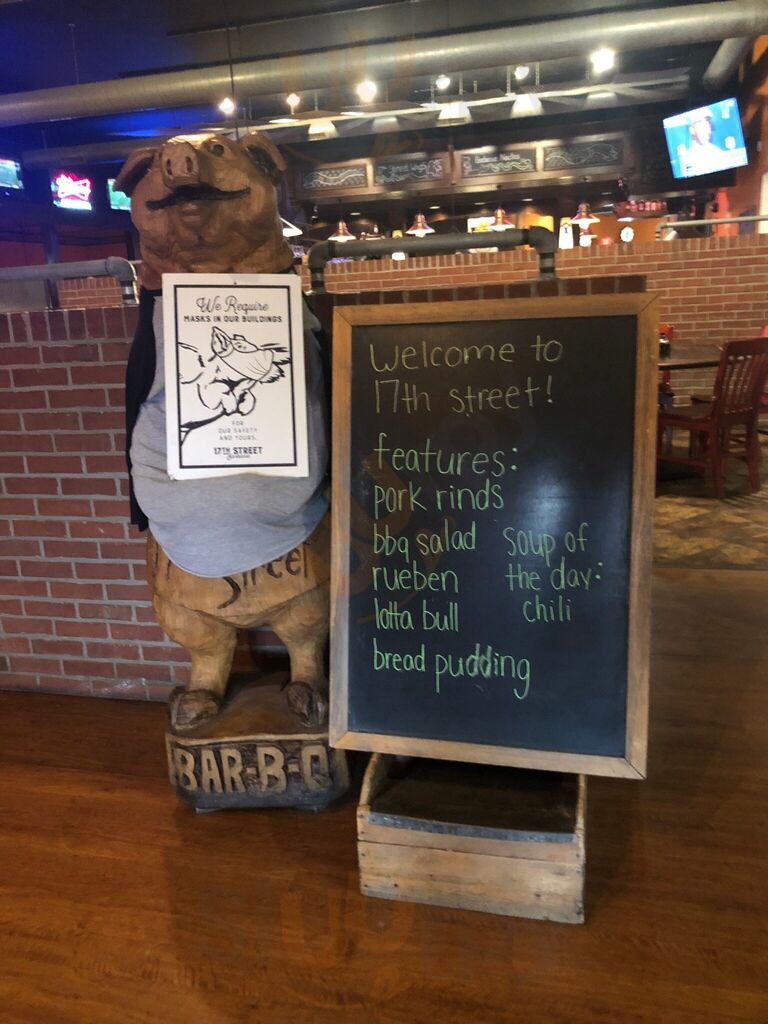 We Require
MASKS IN OUR BUILDINGS
FOR
OUR SAFETY
AND YOURS.
17TH STREET
Barbecue
Street
BAR-B-Q
welcome to
17th street!
features:
pork rinds
bbq salad
rueben
lotta bull
bread pudding
soup of
the day:
chili